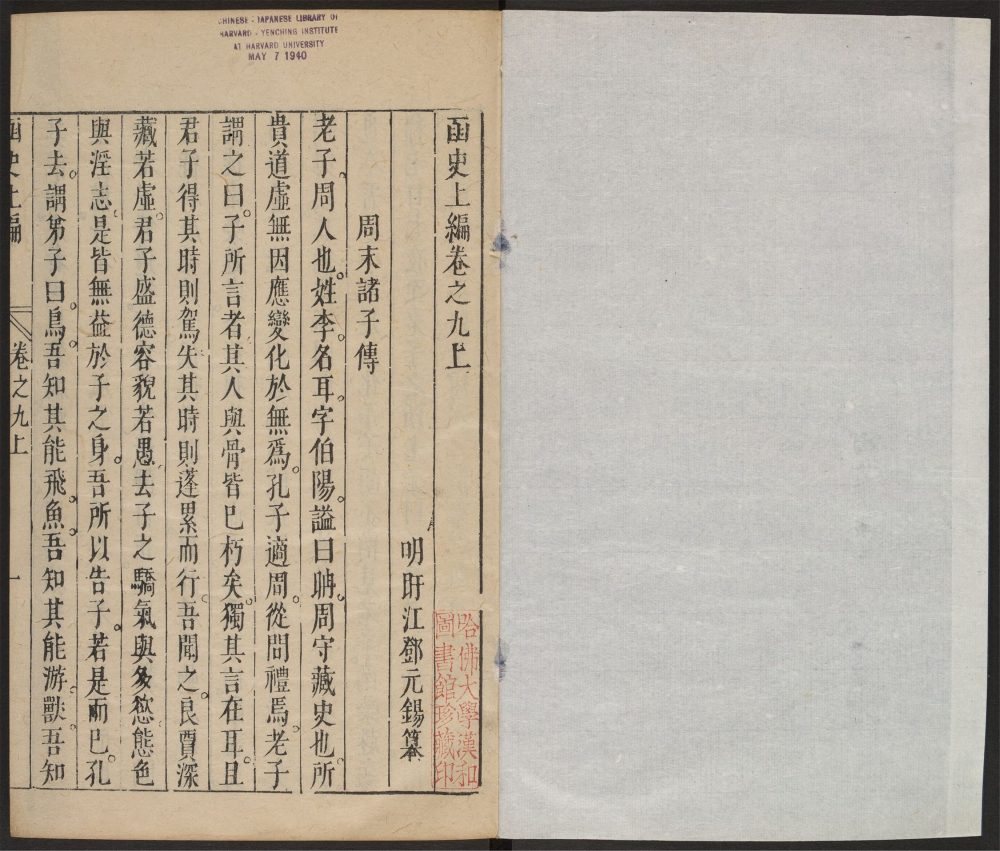 CHINESE - JAPANESE LIBRARY OF
HARVARD - YENCHING INSTITUTE
AT HARVARD UNIVERSITY
MAY 7 1940
函史上編卷之九上
明盱江鄧元錫纂
哈佛大學漢和
圖書館珍藏印
周末諸子傳
老子周人也。姓李。名耳。字伯陽。謚曰聃。周守藏史也。所
貴道虛無因應變化於無爲。孔子適周。從問禮焉。老子
謂之曰。子所言者其人與骨皆已朽矣。獨其言在耳。且
君子得其時則駕失其時則蓬累而行。吾聞之。良賈深
藏若虛。君子盛德容貌若愚。去子之驕氣與多慾態色
與淫志。是皆無益於子之身。吾所以告子。若是而已。孔
子去。謂弟子曰。鳥。吾知其能飛。魚。吾知其能游。獸。吾知
函史上編
卷之九上
一